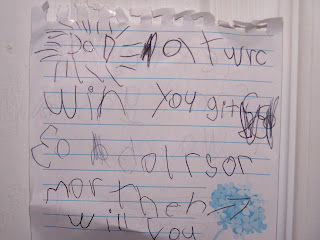 DAD at wrc
win you git
20 dolrs or
mor then
will you